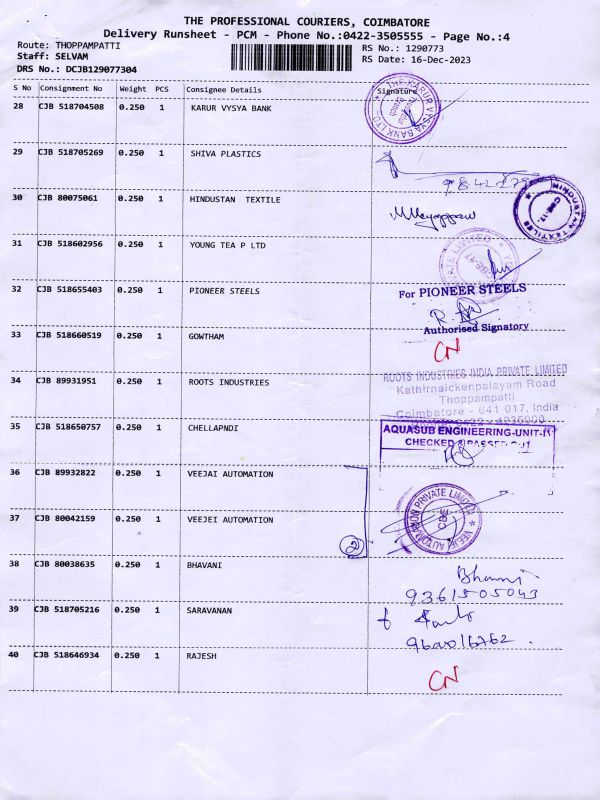 THE PROFESSIONAL COURIERS, COIMBATORE
Delivery Runsheet - PCM - Phone No.:0422-3505555 - Page No.:4
Route: THOPPAMPATTI
RS No.: 1290773
Staff: SELVAM
RS Date: 16-Dec-2023
DRS No.: DCJB129077304
S No Consignment No Weight PCS Consignee Details Signature
28 CJB 518704508 0.250 1 KARUR VYSYA BANK
THE KARUR VYSYA BANK LTD.
29 CJB 518705269 0.250 1 SHIVA PLASTICS
30 CJB 80075061 0.250 1 HINDUSTAN TEXTILE
HINDUSTAN TEXTILES
31 CJB 518602956 0.250 1 YOUNG TEA P LTD
32 CJB 518655403 0.250 1 PIONEER STEELS
For PIONEER STEELS
Authorised Signatory
33 CJB 518660519 0.250 1 GOWTHAM
CN
34 CJB 89931951 0.250 1 ROOTS INDUSTRIES
ROOTS INDUSTRIES INDIA PRIVATE LIMITED
Kathirnaickenpalayam Road
Thoppampatti
Coimbatore - 641 017. India
35 CJB 518650757 0.250 1 CHELLAPNDI
AQUASUB ENGINEERING-UNIT-
CHECKED & PASSED
36 CJB 89932822 0.250 1 VEEJAI AUTOMATION
37 CJB 80042159 0.250 1 VEEJEI AUTOMATION
2
VEEJAI AUTOMATION PRIVATE LIMITED
CBE
38 CJB 80038635 0.250 1 BHAVANI
9361505043
39 CJB 518705216 0.250 1 SARAVANAN
40 CJB 518646934 0.250 1 RAJESH
CN